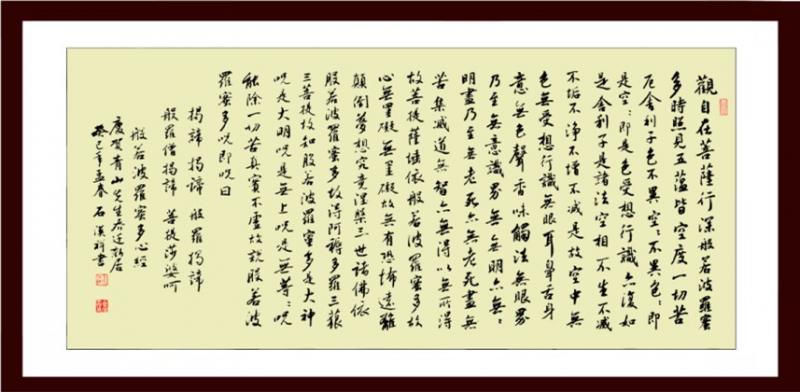 觀自在菩薩行深般若波羅蜜
多時照見五蘊皆空度一切苦
厄舍利子色不異空々不異色々即
是空々即是色受想行識亦復如
是舍利子是諸法空相不生不滅
不垢不淨不增不減是故空中無
色無受想行識無眼耳鼻舌身
意無色聲香味觸法無眼界
乃至無意識界無無明亦無々
明盡乃至無老死亦無老死盡無
苦集滅道無智亦無得以無所得
故菩提薩埵依般若波羅蜜多故
心無罣礙無罣礙故無有恐怖遠離
顛倒夢想究竟涅槃三世諸佛依
般若波羅蜜多故得阿耨多羅三藐
三菩提故知般若波羅蜜多是大神
呪是大明呪是無上呪是無等々呪
能除一切苦真實不虛故說般若波
羅蜜多呪即呪曰
揭諦揭諦般羅揭諦
般羅僧揭諦菩提莎婆呵
般若波羅蜜多心經
慶賀青山先生喬迁新居
癸巳年孟春石漢祥書